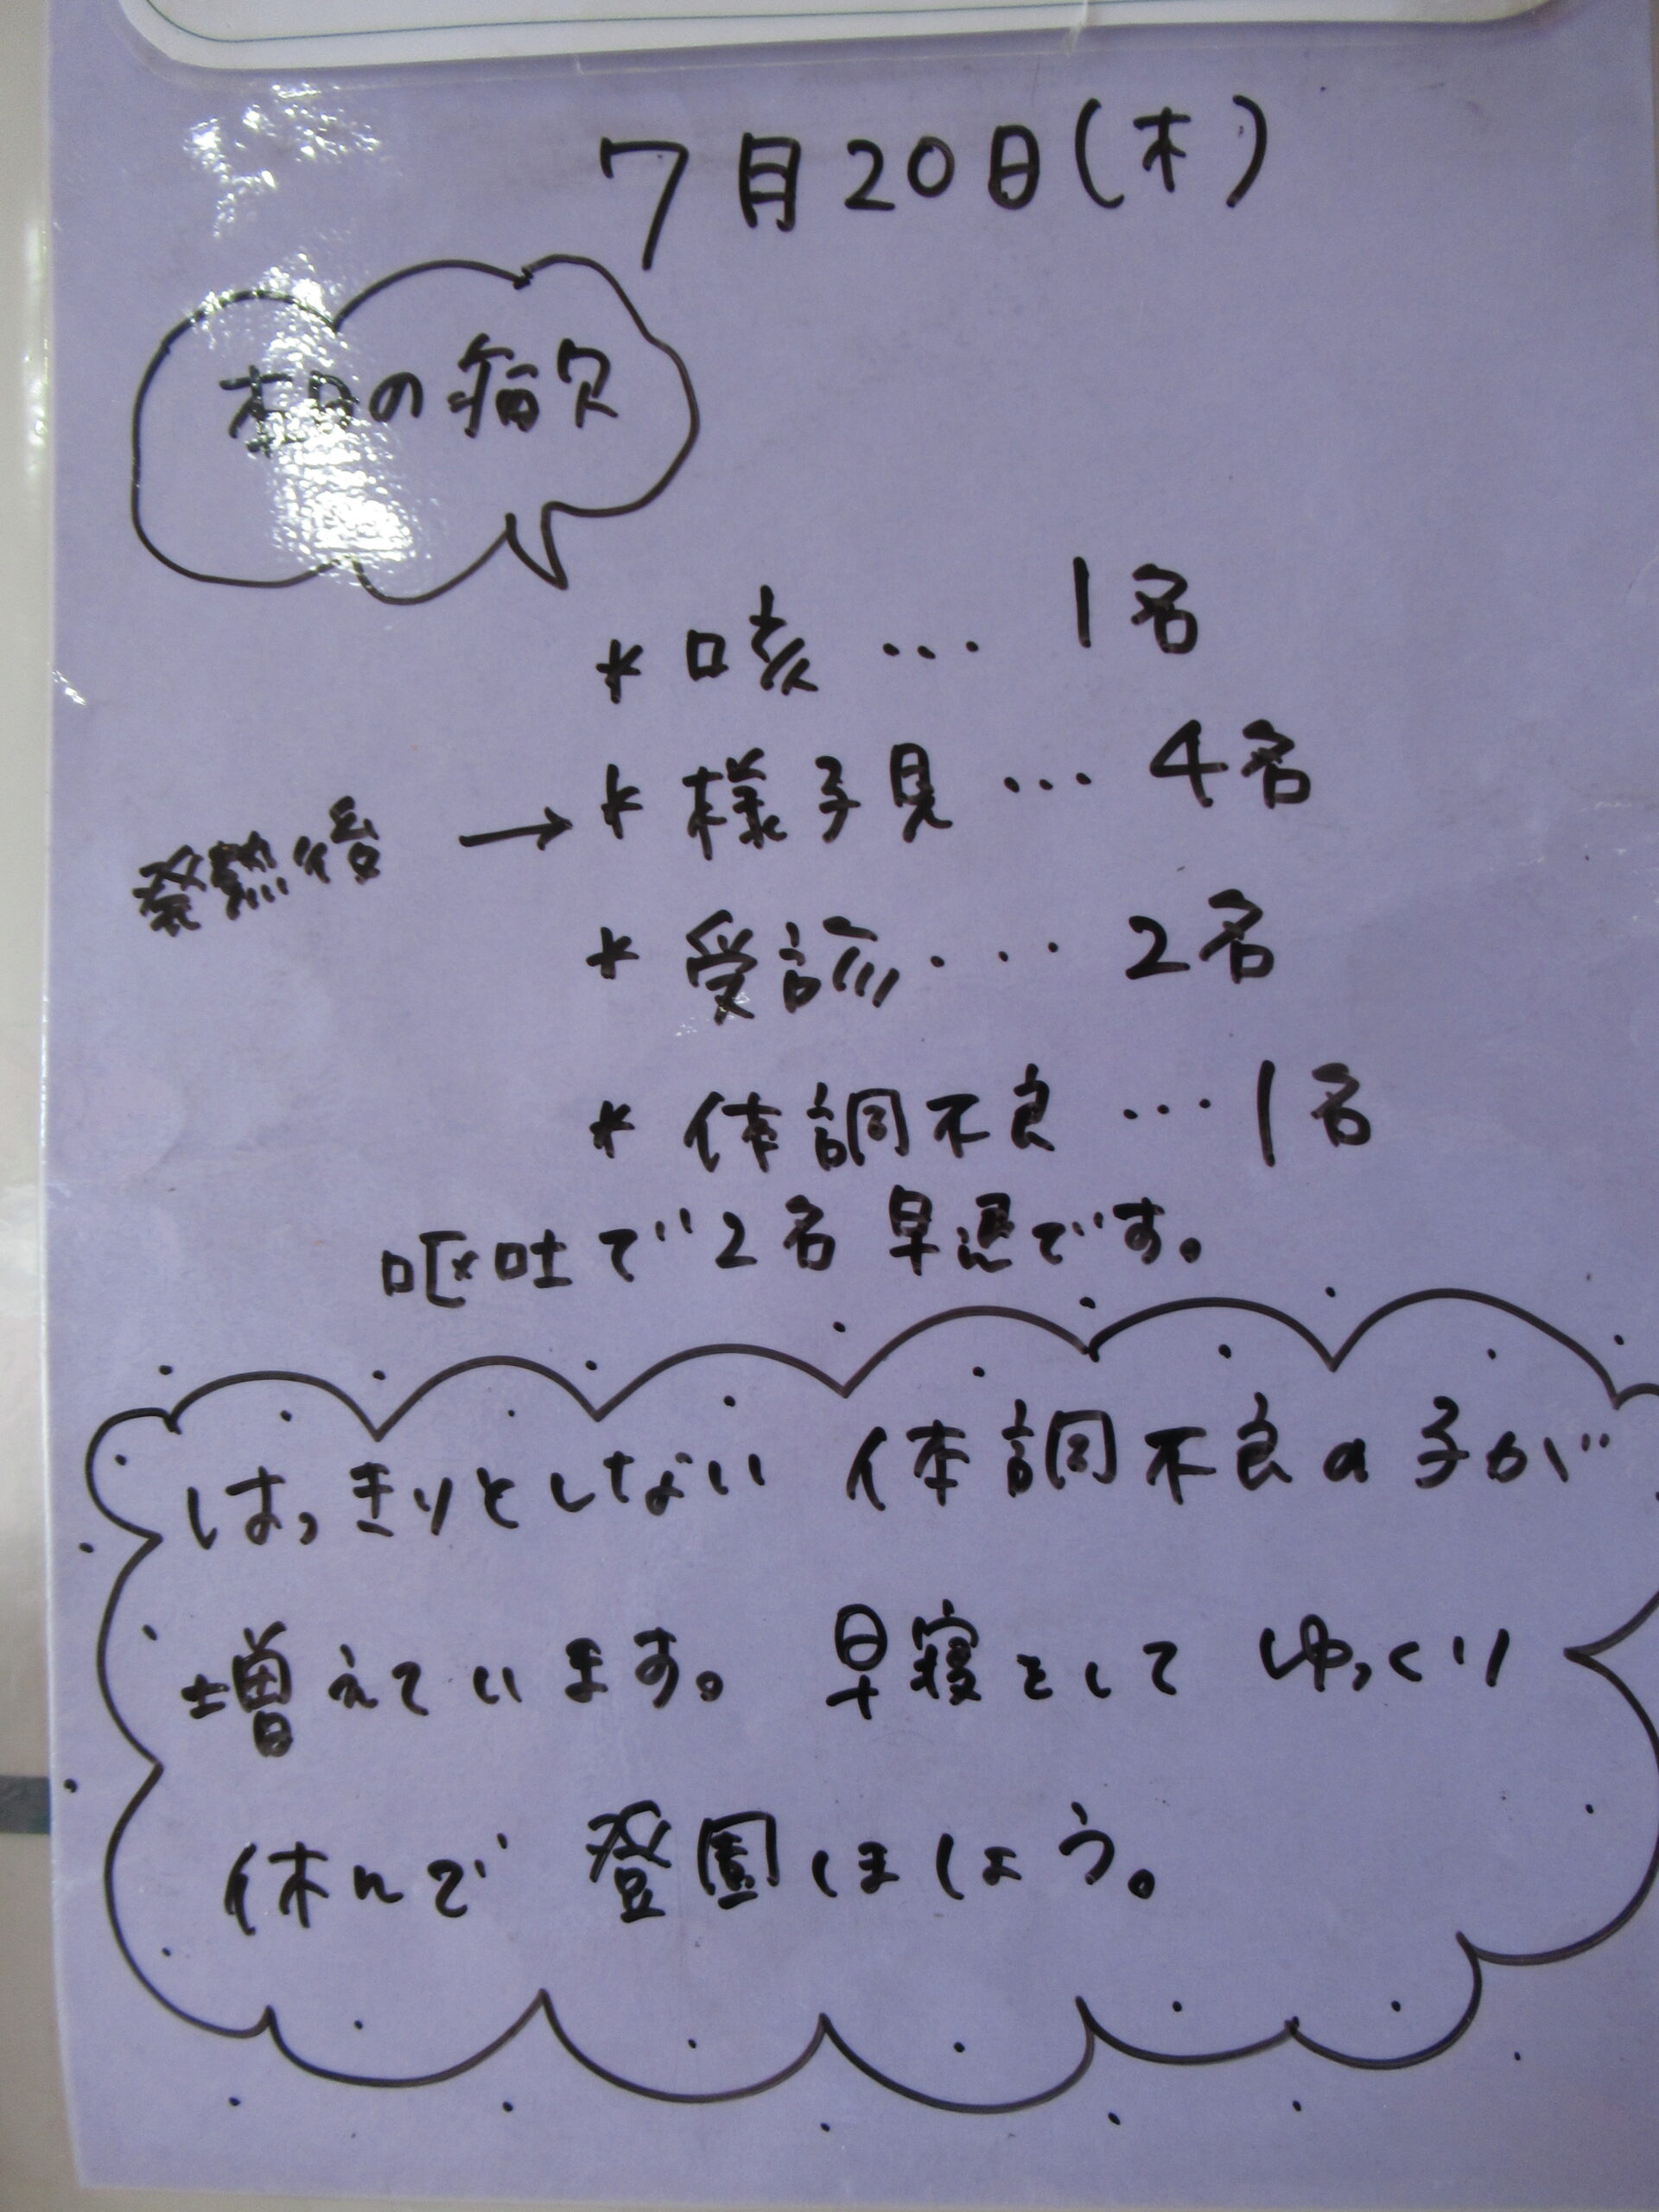 7月20日(木)
本日の病欠
* 咳 … 1名
発熱後 → * 様子見 … 4名
* 受診 … 2名
* 体調不良 … 1名
嘔吐で2名 早退です。
はっきりとしない 体調不良の子が
増えています。 早寝をして ゆっくり
休んで 登園しましょう。